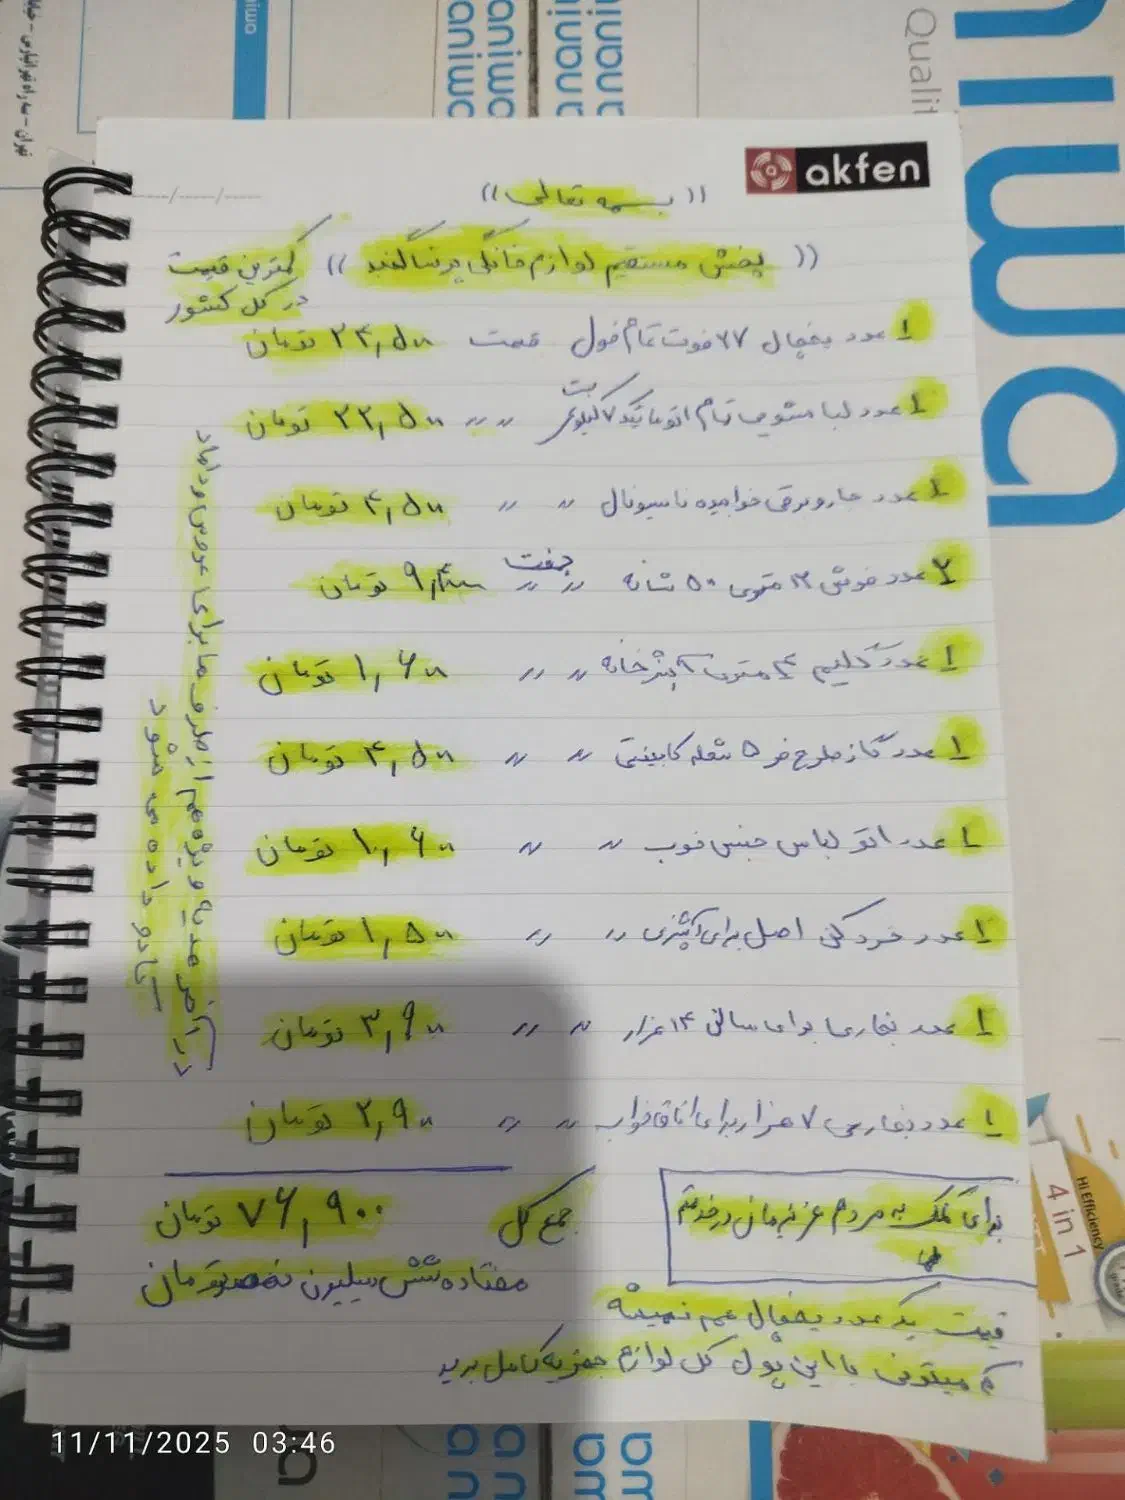 akfen
(( بسمه تعالی ))
(( پخش مستقیم لوازم خانگی )) کمترین قیمت
در کل کشور
۱ عدد یخچال ۲۷ فوت تمام فول قیمت ۲۴,۵۰۰ تومان
۱ عدد لباسشویی تمام اتوماتیک ۷ کیلویی ״ ״ ۲۲,۵۰۰ تومان
۱ عدد جاروبرقی خوابیده ناسیونال ״ ״ ۴,۵۰۰ تومان
۲ عدد فرش ۱۲ متری ۵۰ شانه جفت ״ ״ تومان
۱ عدد گلیم ۴ متری آشپزخانه ״ ״ ۱,۶۰۰ تومان
۱ عدد گاز طرح فر ۵ شعله کابینتی ״ ״ ۴,۵۰۰ تومان
۱ عدد اتو لباس جنس خوب ״ ״ ۱,۶۰۰ تومان
۱ عدد خردکن اصل برای آشپزی ״ ״ ۱,۵۰۰ تومان
۱ عدد بخاری برای سالن ۱۴ هزار ״ ״ ۳,۹۰۰ تومان
۱ عدد بخاری ۷ هزار برای اتاق خواب ״ ״ ۲,۹۰۰ تومان
جمع کل ۷۶,۹۰۰ تومان
هفتاده شش میلیون نهصد تومان
برای کمک به مردم عزیزمان در خدمتم
قیمت یک عدد یخچال هم نمیشه
که میتونی با این پول کل لوازم جهزیه کامل ببرید
در آخر هدیه ویژه هم از طرف ما برای عروس و داماد
کادو داده می شود
aniwa
niwa
Qualit
Hi Efficiency
4 in 1
11/11/2025 03:46